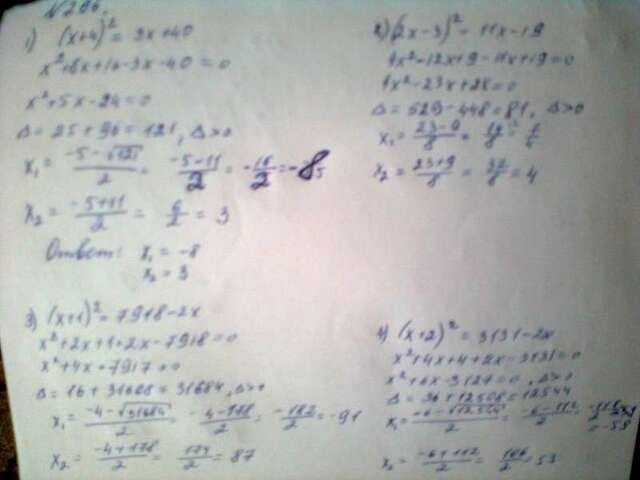 1) (x+4)² = 3x+40
x²+8x+16-3x-40 = 0
x²+5x-24=0
Δ = 25+96=121, Δ>0
x₁ = (-5-√121)/2 = (-5-11)/2 = -16/2 = -8
x₂ = (-5+11)/2 = 6/2 = 3
Ответ: x₁ = -8
x₂ = 3
2) (2x-3)² = 11x-19
4x²-12x+9-11x+19=0
4x²-23x+28=0
Δ = 529-448=81, Δ>0
x₂ = (23+9)/8 = 32/8 = 4
3) (x+1)² = 7918-2x
x²+2x+1+2x-7918=0
x²+4x-7917=0
Δ = 16+31668=31684, Δ>0
x₁ = (-4-√31684)/2 = (-4-178)/2 = -182/2 = -91
x₂ = (-4+178)/2 = 174/2 = 87
4) (x+2)² = 3131-2x
x²+4x+4+2x-3131=0
x²+6x-3127=0, Δ>0
Δ = 36+12508=12544
x₂ = (-6+112)/2 = 106/2 = 53